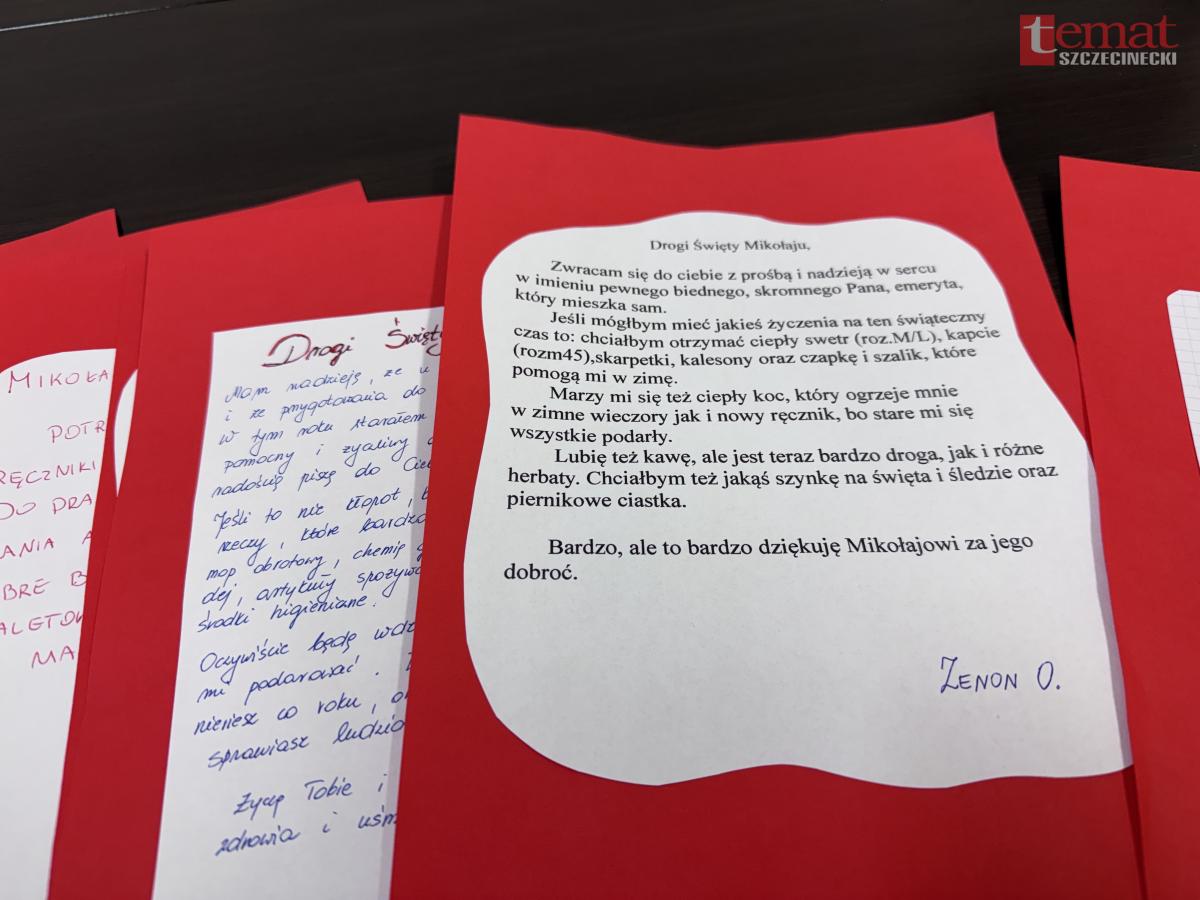 temat
SZCZECINECKI
MIKOŁA
POTR
RĘCZNIKI
DO PRA
ANIA A
BRE B
ALETOW
MA
Drogi Święty
Mam nadzieję, że u
i że przygotowania do
W tym roku starałem
pomocny i życzliwy
radością piszę do Cie
Jeśli to nie kłopot,
rzeczy, które bardzo
mop obrotowy, chemię
dej, artykuły spożyw
środki higieniane.
Oczywiście będę wdz
mi podarować.
niesiesz co roku,
sprawiasz ludzio
Życzę Tobie i
zdrowia i uśm
Drogi Święty Mikołaju,
Zwracam się do ciebie z prośbą i nadzieją w sercu
w imieniu pewnego biednego, skromnego Pana, emeryta,
który mieszka sam.
Jeśli mógłbym mieć jakieś życzenia na ten świąteczny
czas to: chciałbym otrzymać ciepły swetr (roz.M/L), kapcie
(rozm45),skarpetki, kalesony oraz czapkę i szalik, które
pomogą mi w zimę.
Marzy mi się też ciepły koc, który ogrzeje mnie
w zimne wieczory jak i nowy ręcznik, bo stare mi się
wszystkie podarły.
Lubię też kawę, ale jest teraz bardzo droga, jak i różne
herbaty. Chciałbym też jakąś szynkę na święta i śledzie oraz
piernikowe ciastka.
Bardzo, ale to bardzo dziękuję Mikołajowi za jego
dobroć.
ZENON O.